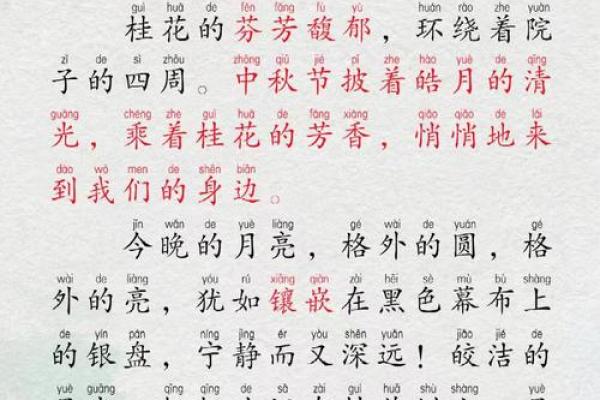 guì huā de fēn fāng fù yù huán rào zhe yuàn
桂花的芬芳馥郁，环绕着院
zǐ de sì zhōu zhōng qiū jié pī zhe hào yuè de qīng
子的四周。中秋节披着皓月的清
guāng chéng zhe guì huā de fāng xiāng qiāo qiāo de lái
光，乘着桂花的芳香，悄悄地来
dào wǒ men de shēn biān
到我们的身边。
jīn wǎn de yuè liàng gé wài de yuán gé
今晚的月亮，格外的圆，格
wài de liàng yóu rú xiāng qiàn zài hēi sè mù bù shàng
外的亮，犹如镶嵌在黑色幕布上
de yín pán níng jìng ér yòu shēn yuǎn jiǎo jié de
的银盘，宁静而又深远！皎洁的
yuè guāng qīng qīng de sǎ zài guì huā shù shàng yuè